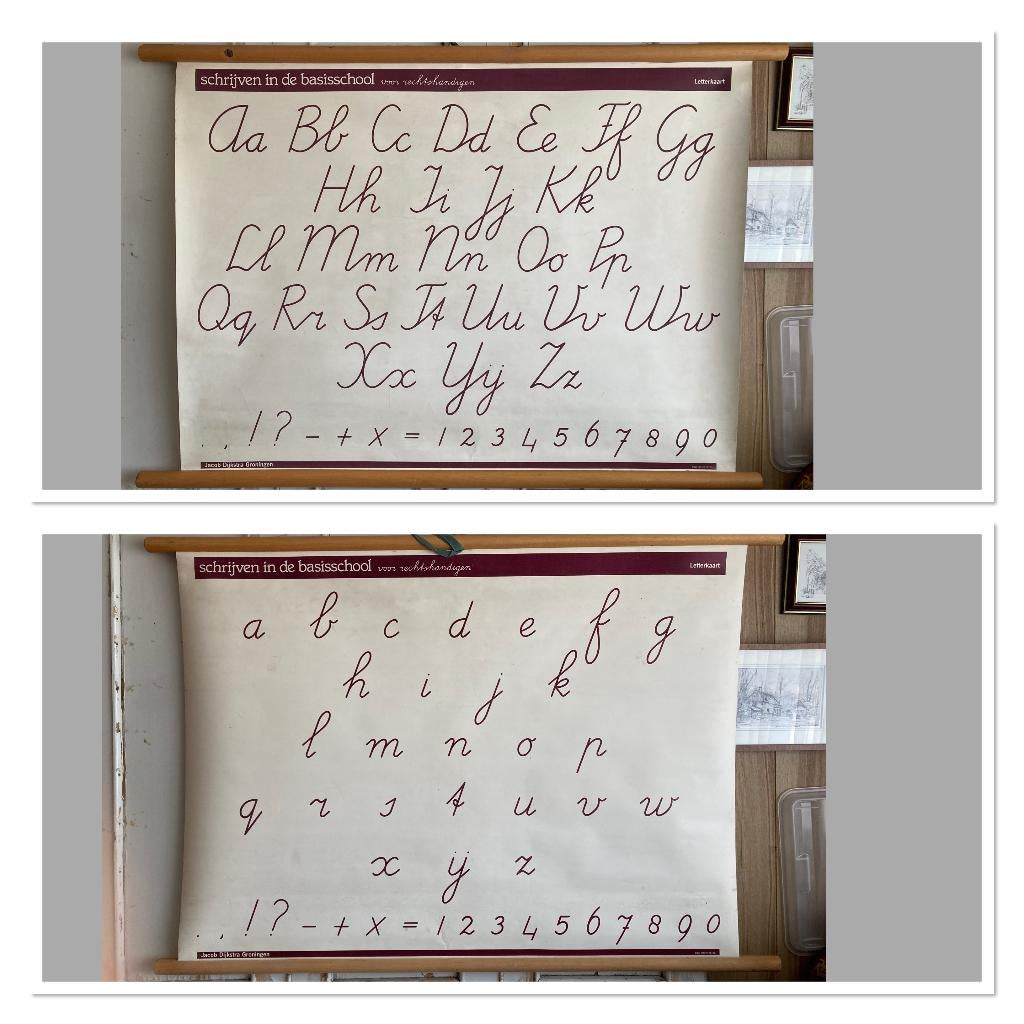 schrijven in de basisschool voor rechtshandigen Letterkaart
Aa Bb Cc Dd Ee Ff Gg
Hh Ii Jj Kk
Ll Mm Nn Oo Pp
Qq Rr Ss Tt Uu Vv Ww
Xx Yÿ Zz
. , ! ? - + x = 1 2 3 4 5 6 7 8 9 0
Jacob Dijkstra Groningen
schrijven in de basisschool voor rechtshandigen Letterkaart
a b c d e f g
h i j k
l m n o p
q r s t u v w
x ÿ z
. , ! ? - + x = 1 2 3 4 5 6 7 8 9 0
Jacob Dijkstra Groningen